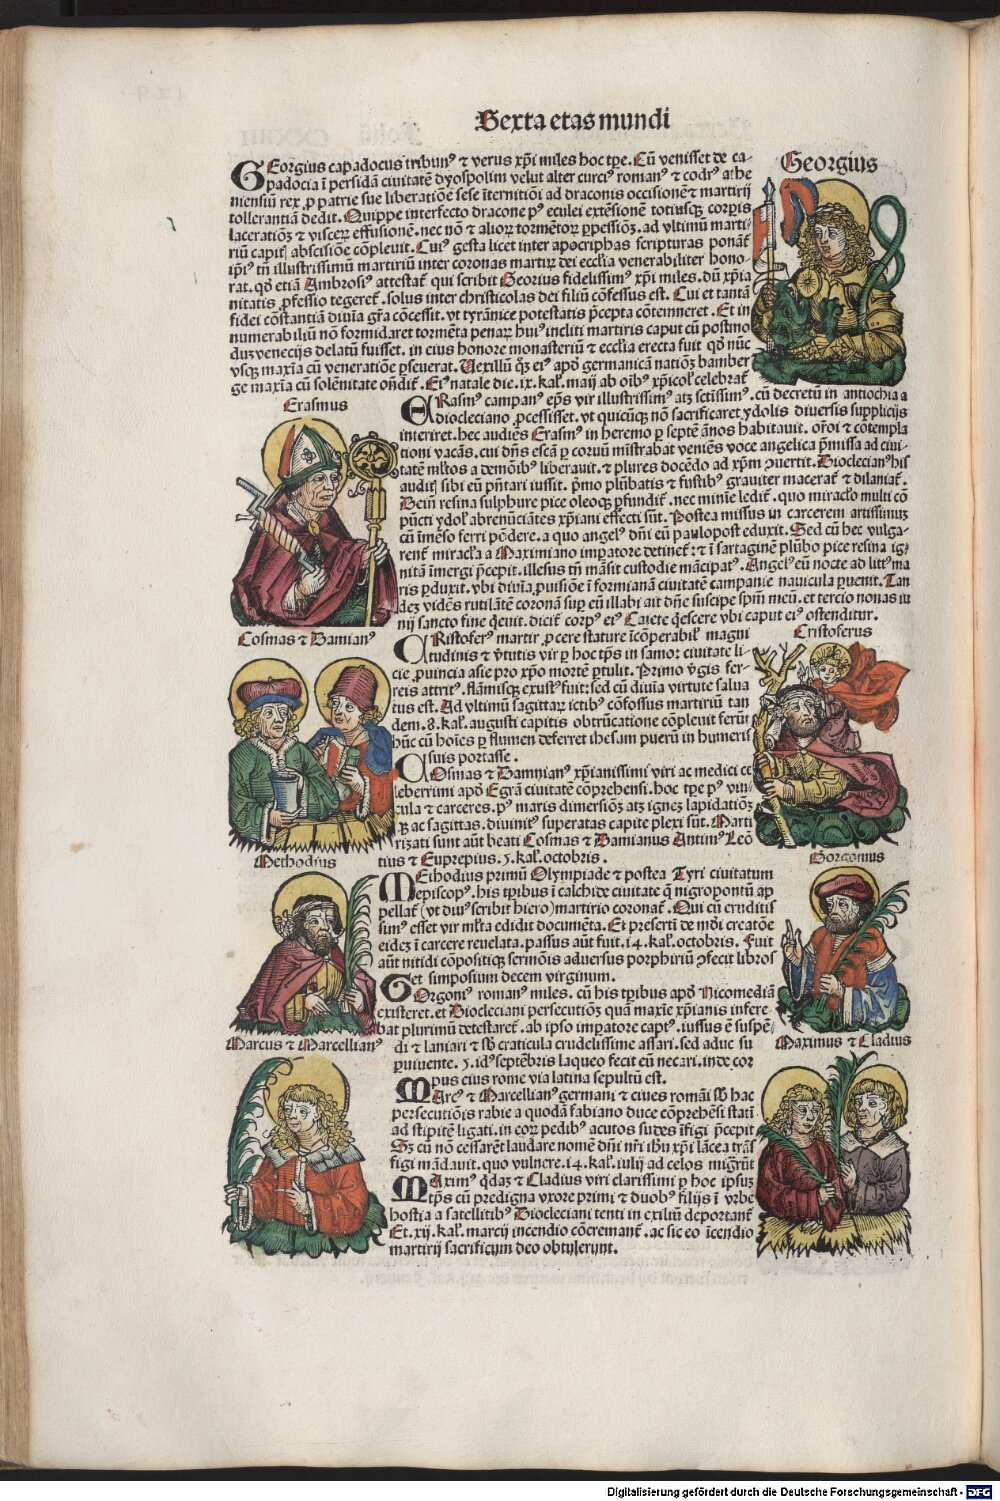 Sexta etas mundi
Georgius
GEorgius capadocus tribunꝰ ⁊ verus xp̄i miles hoc tp̄e. Cū venisset de ca-
padocia ī persidā ciuitatē dyospolim velut alter curciꝰ romanꝰ ⁊ codrꝰ athe
niensiū rex ꝓ patrie sue liberatiōe sese īternitiōi ad draconis occisionē ⁊ martirij
tollerantiā dedit. Quippe interfecto dracone pꝰ eculei extēsionē totiusqꝫ corꝑis
laceratiōꝫ ⁊ visceꝝ effusionē. nec nō ⁊ alioꝝ tormētoꝝ ꝑpessiōꝫ. ad vltimū marti-
riū capitꝭ abscisiōe cōpleuit. Cuiꝰ gesta licet inter apocriphas scripturas ponāt᷑
ip̄iꝰ tn̄ illustrissimū martiriū inter coronas martiꝝ dei eccl̄ia venerabiliter hono-
rat. qd̓ etiā Ambrosiꝰ attestat᷑ qui scribit Georius fidelissimꝰ xp̄i miles. dū xp̄ia
nitatis ꝓfessio tegeret᷑. solus inter christicolas dei filiū cōfessus est. Cui et tantā
fidei cōstantiā diuīa gr̄a cōcessit. vt tyrānice potestatis p̄cepta cōtenneret. Et in
numerabiliū nō formidaret tormēta penaꝝ huiꝰ incliti martiris caput cū postmo
dū venecijs delatū fuisset. in eius honore monasteriū ⁊ eccl̄ia erecta fuit qd̓ nūc
vsqꝫ maxīa cū veneratiōe ꝑseuerat. Uexillū qꝫ eiꝰ apd̓ germanicā natiōꝫ bamber
ge maxīa cū solēnitate on̄dit᷑. Eiꝰ natale die. ix. kal̓. maij ab oībꝰ xp̄icol̓ celebrat᷑
Erasmus
ERasmꝰ campanꝰ ep̄s vir illustrissimꝰ atqꝫ sctīssimꝰ. cū decretū in antiochia a
diocleciano ꝓcessisset. vt quicūqꝫ nō sacrificaret ydolis diuersis supplicijs
interiret. hec audiēs Erasmꝰ in heremo ꝑ septē ānos habitauit. or̄oi ⁊ cōtempla
tioni vacās. cui dn̄s escā ꝑ coruū mīstrabat veniēs voce angelica p̄missa ad ciui-
tatē ml̓tos a demōibꝰ liberauit. ⁊ plures docēdo ad xp̄m ↄuertit. Dioclecianꝰ his
auditꝭ sibi eū p̄ntari iussit. p̄mo plūbatis ⁊ fustibꝰ grauiter macerat᷑ ⁊ dilaniat᷑.
Dein̄ resina sulphure pice oleoqꝫ ꝑfundit᷑. nec minīe ledit᷑. quo miracl̓o multi cō
pūcti ydol̓ abrenūciātes xp̄iani effecti sūt. Postea missus in carcerem artissimuꝫ
cū īmēso ferri pōdere. a quo angelꝰ dn̄i eū paulopost eduxit. Sed cū hec vulga-
rent᷑ miracl̓a a Maximiano imꝑatore detinet᷑: ⁊ ī sartaginē plūbo pice resina ig-
nitā īmergi p̄cepit. illesus tn̄ māsit custodie mācipatꝰ. Angelꝰ eū nocte ad littꝰ ma
ris ꝑduxit. vbi diuīa ꝓuisiōe ī formianā ciuitatē campanie nauicula ꝑuenit. Tan
deꝫ vidēs rutilātē coronā suꝑ eū illabi ait dn̄e suscipe spm̄ meū. et tercio nonas iu
nij sancto fine q̄euit. dicit᷑ corpꝰ eiꝰ Caiete q̄escere vbi caput eiꝰ ostenditur.
Cosmas ⁊ Damianꝰ
Cristoferus
CRistoferꝰ martir ꝓcere stature īcōperabil̓ magni
tudinis ⁊ v̓tutis vir ꝑ hoc tp̄s in samoꝝ ciuitate li-
cie ꝓuincia asie pro xp̄o mortē ꝑtulit. Primo v̓gis fer-
reis attritꝰ. flāmisqꝫ exustꝰ fuit: sed cū diuīa virtute salua
tus est. Ad vltimū sagittaꝝ ictibꝰ cōfossus martiriū tan
dem. 8. kal̓. augusti capitis obtrūcatione cōpleuit ferūt
hūc cū hoīes ꝑ flumen deferret ihesum puerū in humeris
suis portasse.
COsmas ⁊ Damnianꝰ xp̄ianissimi viri ac medici ce
leberrimi apd̓ Egrā ciuitatē cōprehensi. hoc tp̄e pꝰ vin-
cula ⁊ carceres. pꝰ maris dimersiōꝫ atqꝫ igneꝫ lapidatiōꝫ
qꝫ ac sagittas. diuinitꝰ superatas capite plexi sūt. Marti
rizati sunt aūt beati Cosmas ⁊ Damianus Antimꝰ Leō
tius ⁊ Euprepius. 5. kal̓. octobris.
Methodius
Gorgonius
MEthodius primū Olympiade ⁊ postea Tyri ciuitatum
episcopꝰ. his tꝑibus ī calchide ciuitate q̄ nigropontū ap
pellat᷑ (vt diuꝰ scribit hiero) martirio coronat᷑. Qui cū eruditis
simꝰ esset vir ml̓ta edidit documēta. Et presertī de mūdi creatōe
eideꝫ ī carcere reuelata. passus aūt fuit. 14. kal̓. octobris. Fuit
aūt nitidi cōpositiqꝫ sermōis aduersus porphiriū ↄfecit libros
et simposium decem virginum.
GOrgoniꝰ romanꝰ miles. cū his tꝑibus apd̓ Nicomediā
existeret. et Diocleciani persecutiōꝫ quā maxīe xp̄ianis infere-
bat plurimū detestaret᷑. ab ipso imꝑatore captꝰ. iussus ē suspē-
di ⁊ laniari ⁊ sb̓ craticula crudelissime assari. sed adhuc su
ꝑuiuente. 5. idꝰ septēbris laqueo fecit eū necari. inde cor
pus eius rome via latina sepultū est.
Marcus ⁊ Marcellianꝰ
Maximus ⁊ Cladius
MArcꝰ ⁊ Marcellianꝰ germani ⁊ ciues romāi sb̓ hac
persecutiōis rabie a quodā fabiano duce cōprehēsi statī
ad stipitē ligati. in eoꝝ pedibꝰ acutos sudes īfigi p̄cepit
Sꝫ cū nō cessarēt laudare nomē dn̄i nr̄i ihū xp̄i lācea trās
figi mādauit. quo vulnere. 14. kal̓. iulij ad celos migrūt
MAximꝰ q̄daꝫ ⁊ Cladius viri clarissimi ꝑ hoc ipsuꝫ
tp̄s cū predigna vxore primi ⁊ duobꝰ filijs ī vrbe
hostia a satellitibꝰ Diocleciani tenti in exiliū deportant᷑
Et. xij. kal̓. marcij incendio cōcremant᷑. ac sic eo īcendio
martirij sacrificium deo obtulerunt.
Digitalisierung gefördert durch die Deutsche Forschungsgemeinschaft - DFG